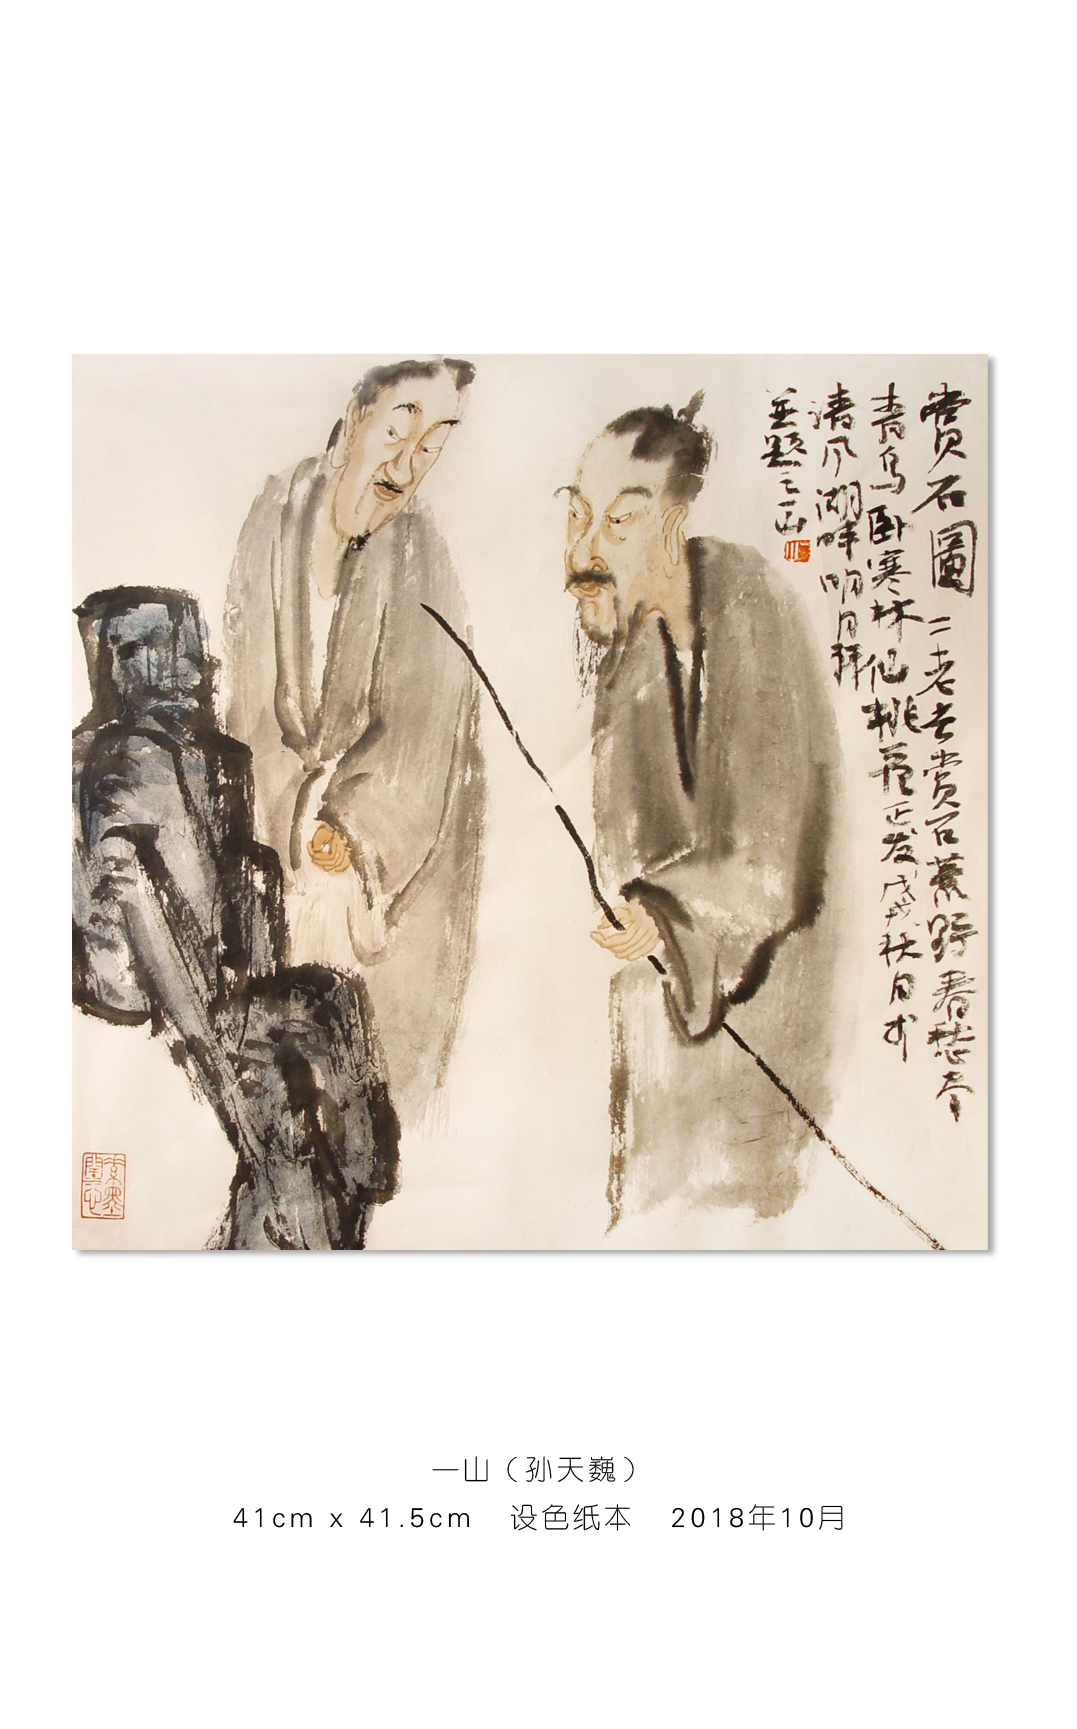 賞石圖 二老去賞石荒野春愁幸
青鸟卧寒林仙桃花正发 戊戌秋月於
清风湖畔明月拜
并题 一山
一山（孙天巍）
41cm x 41.5cm 设色纸本 2018年10月